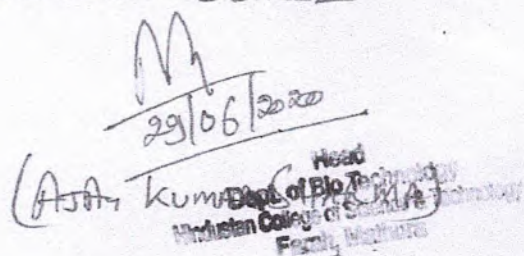 29/06/2020
Head
(AJAY KUMAR SHARMA)
Dept. of Bio Technology
Hindustan College of Science & Technology
Farah, Mathura